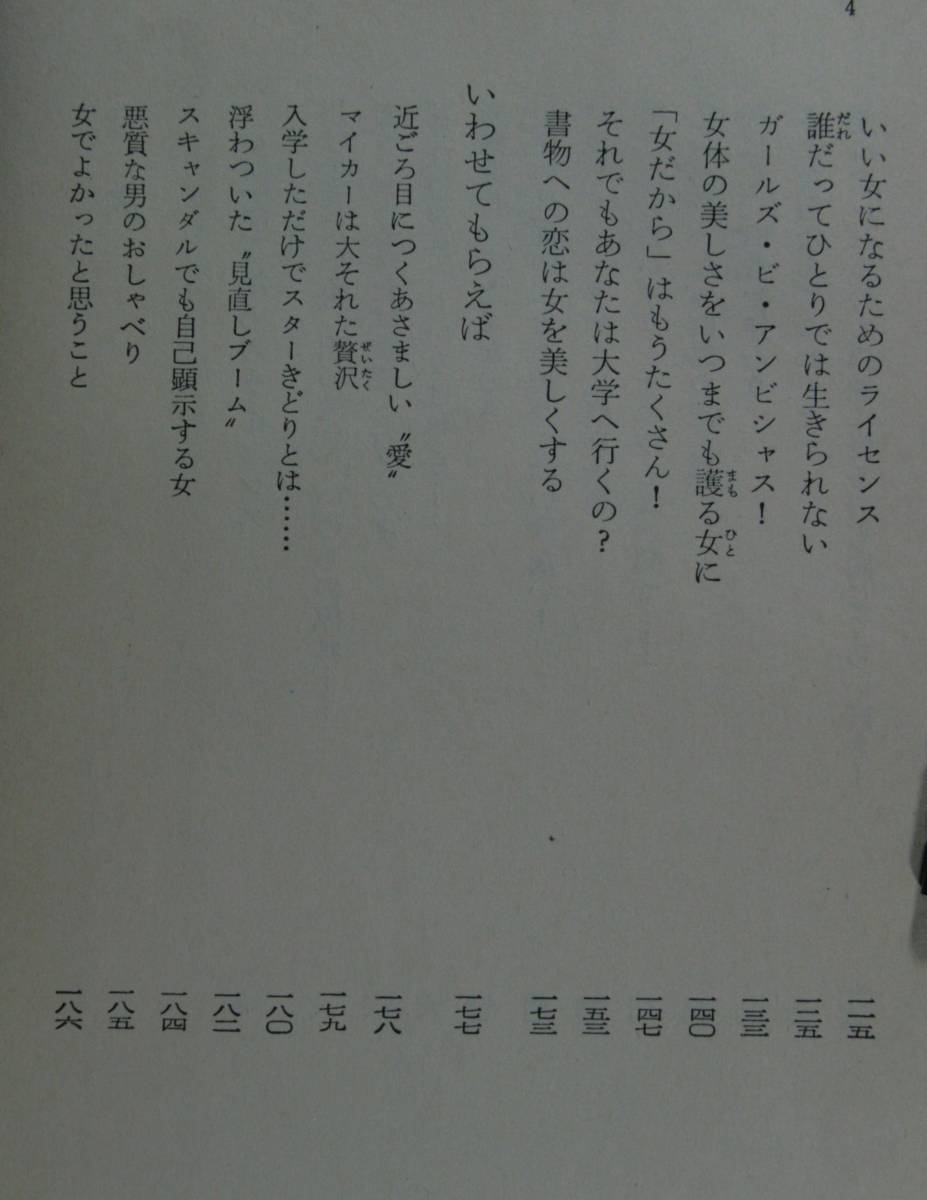 4
いい女になるためのライセンス 一一五
誰だってひとりでは生きられない 一二五
ガールズ・ビ・アンビシャス！ 一三三
女体の美しさをいつまでも護る女に 一四〇
「女だから」はもうたくさん！ 一四七
それでもあなたは大学へ行くの？ 一五三
書物への恋は女を美しくする 一七三
いわせてもらえば 一七七
近ごろ目につくあさましい〝愛〟 一七八
マイカーは大それた贅沢 一七九
入学しただけでスターきどりとは…… 一八〇
浮わついた〝見直しブーム〟 一八二
スキャンダルでも自己顕示する女 一八四
悪質な男のおしゃべり 一八五
女でよかったと思うこと 一八六